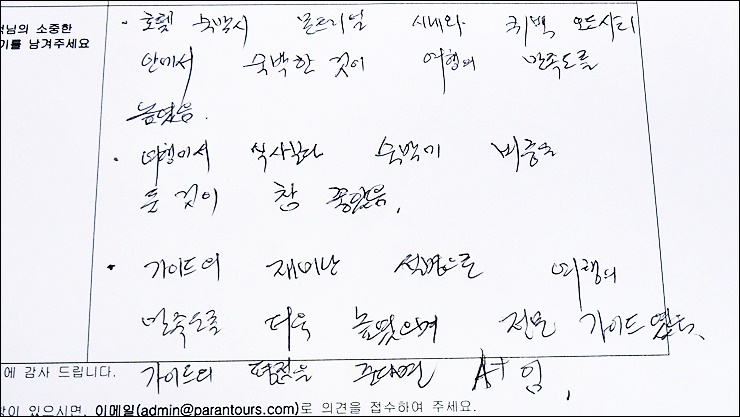 객님의 소중한
기를 남겨주세요
· 호텔 숙박시 몬트리얼 시내와 퀘백 올드시티
안에서 숙박한 것이 여행의 만족도를
높였음.
· 여행에서 식사보다 숙박에 비중을
둔 것이 참 좋았음.
· 가이드의 재미난 설명으로 여행의
만족도를 더욱 높였으며 전문 가이드였음.
에 감사 드립니다.
가이드의 평점을 준다면 A+ 임.
것이 있으시면, 이메일(admin@parantours.com)로 의견을 접수하여 주세요.